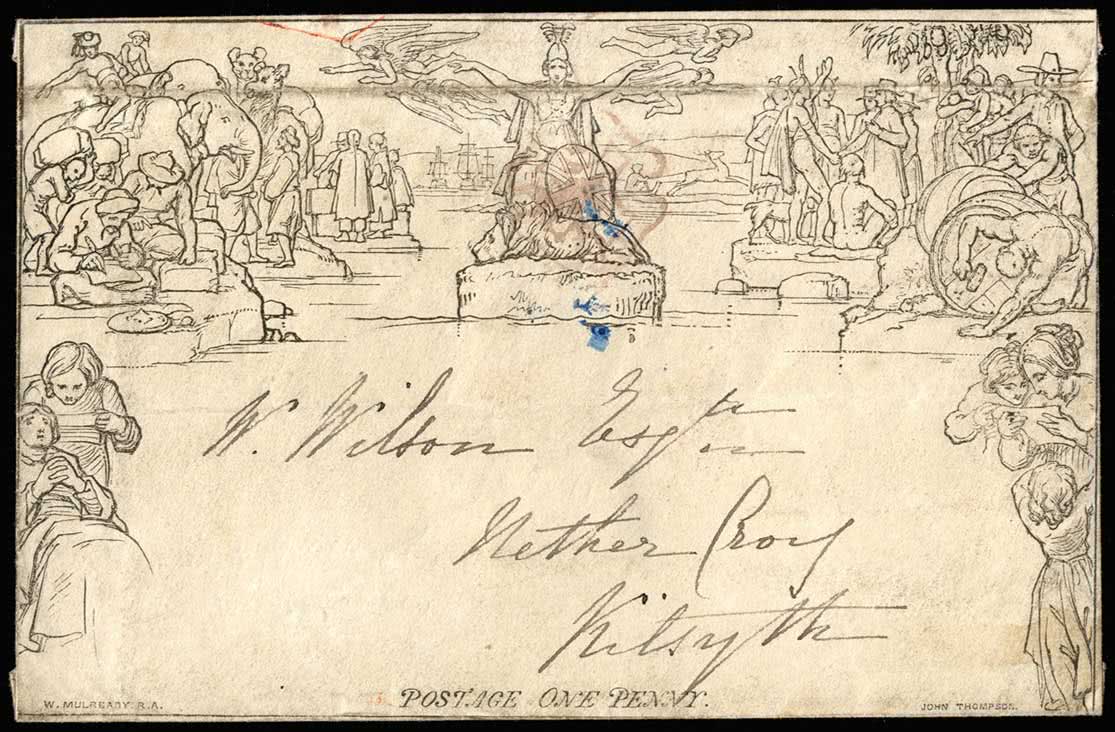 W. Wilson Esqre
Nether Croy
Kilsyth
POSTAGE ONE PENNY.
W. MULREADY. R.A.
JOHN THOMPSON.